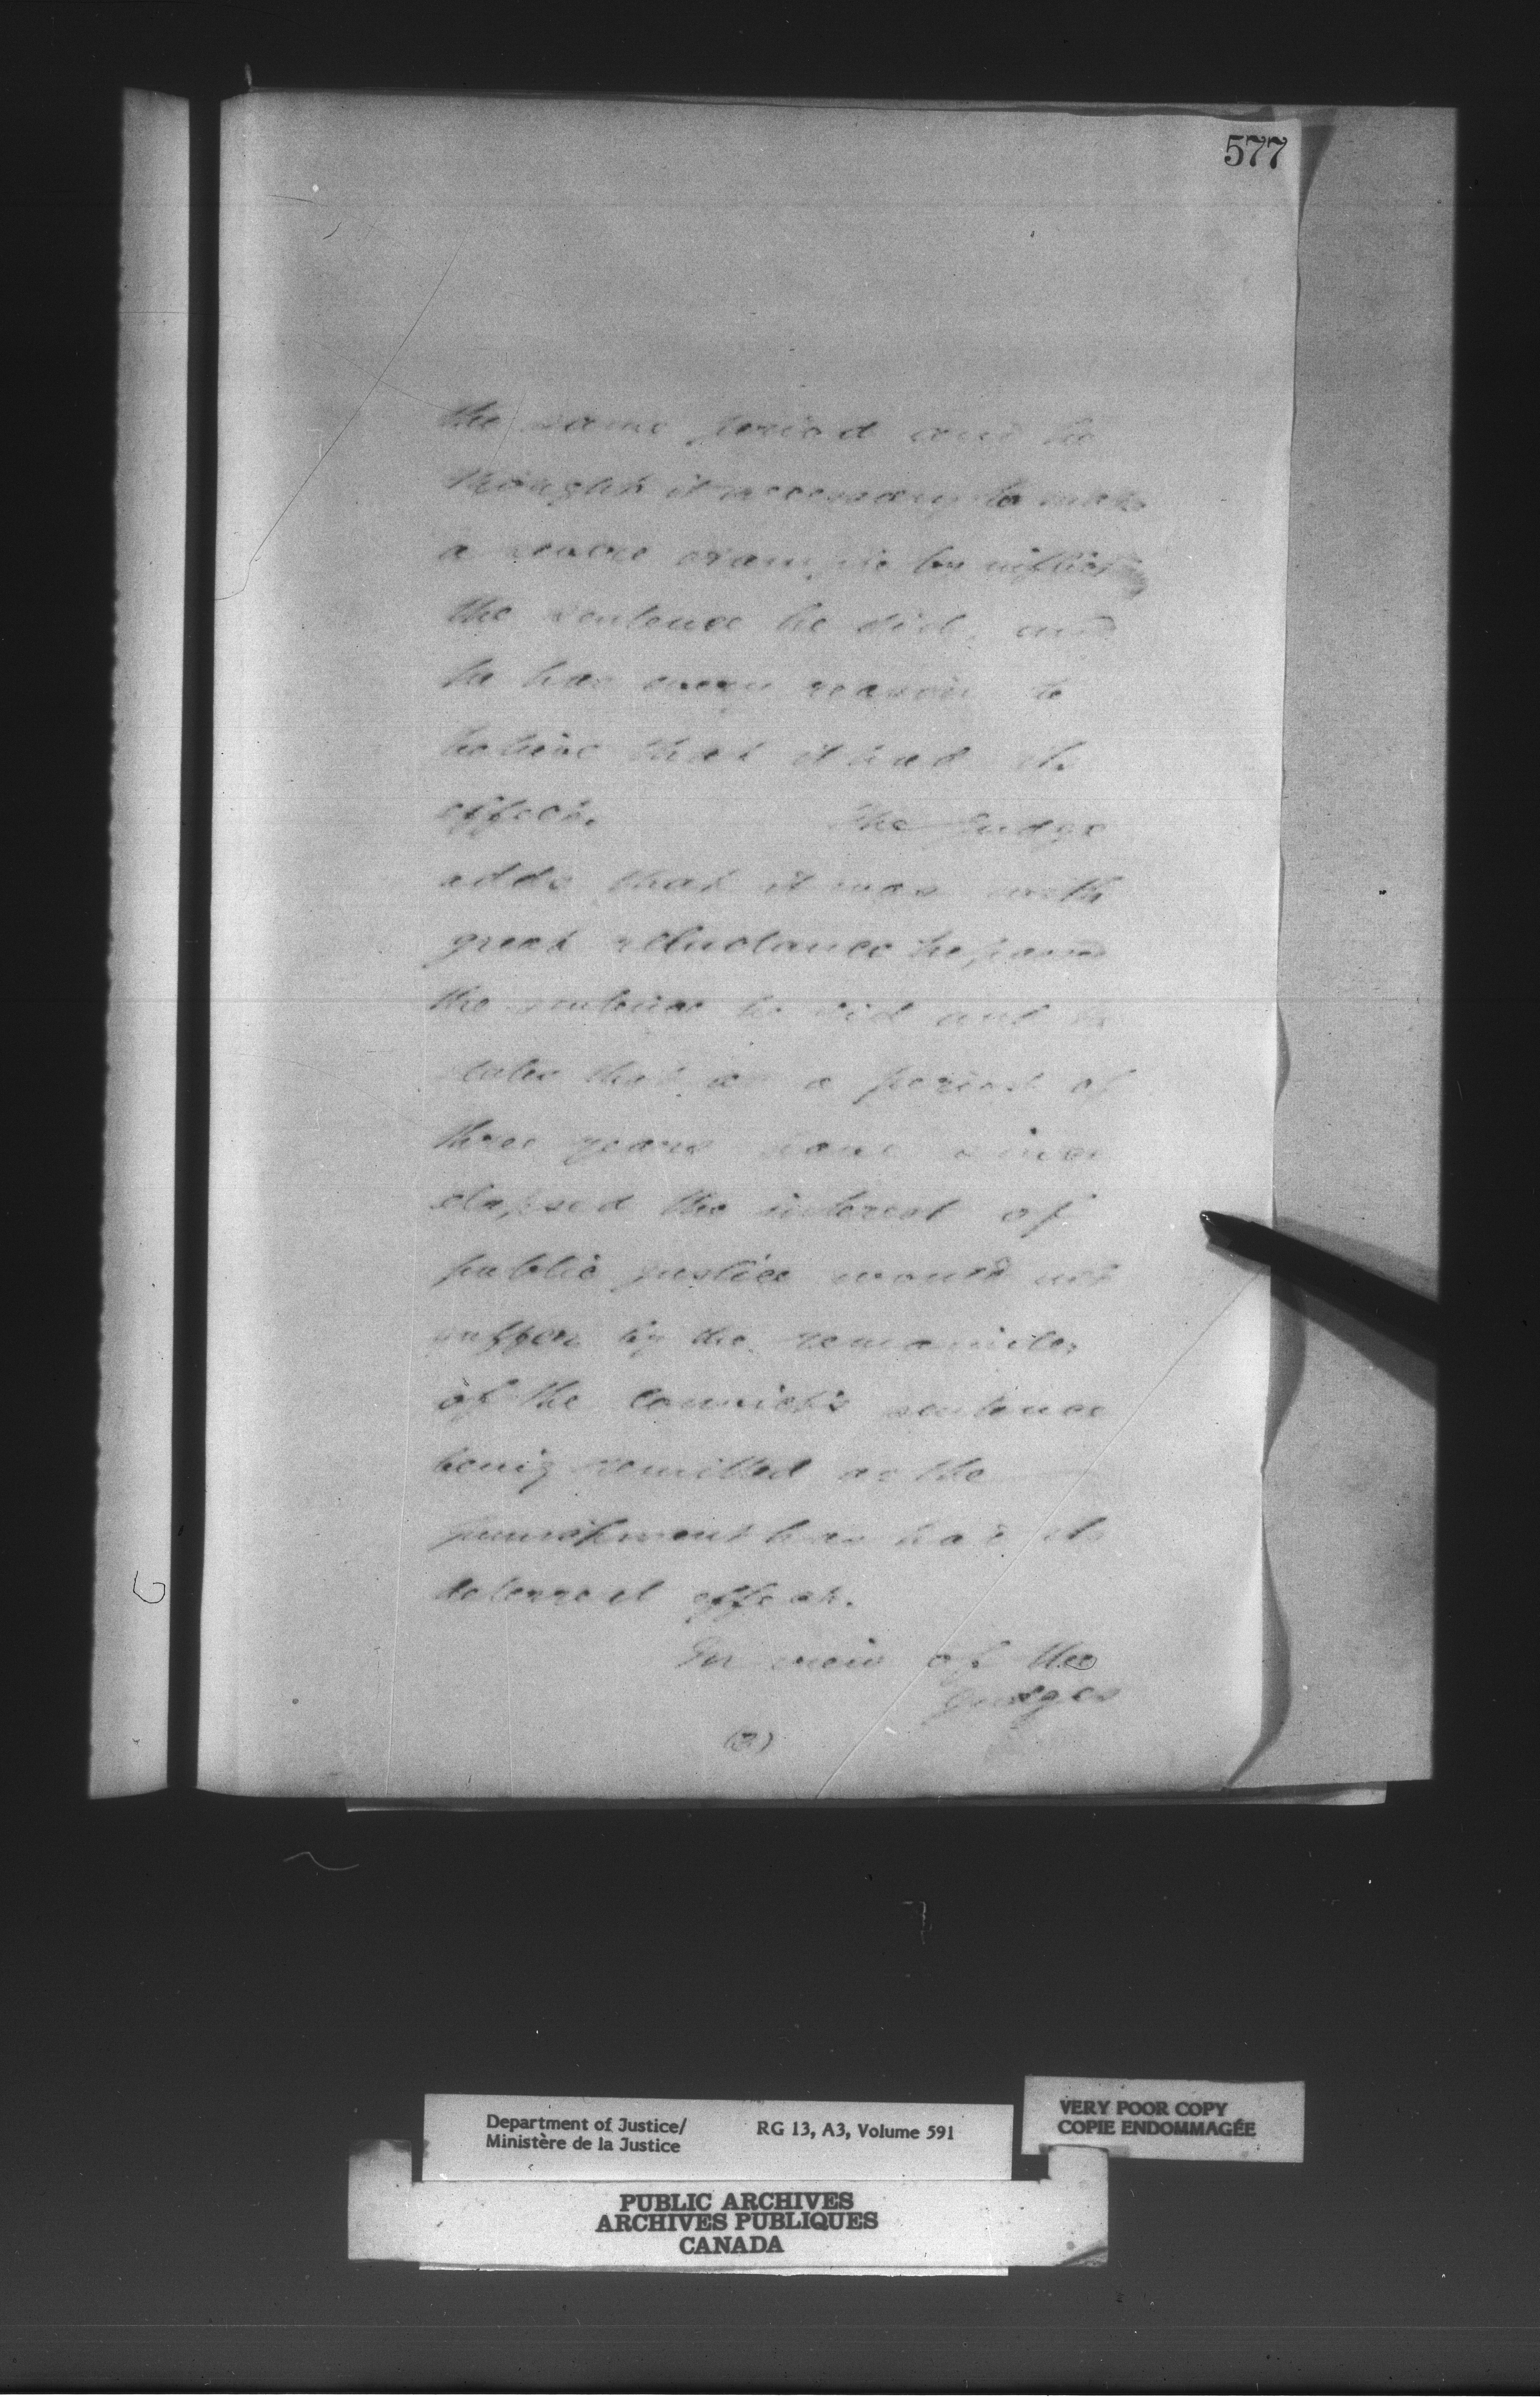 577
the same period and he
thought it necessary to make
a severe example by inflicting
the sentence he did, and
he has every reason to
believe that it had its
effect. The Judge
adds that it was with
great reluctance he passed
the sentence he did and he
states that as a period of
three years have since
elapsed the interest of
public justice would not
suffer by the remainder
of the convict's sentence
being remitted as the
punishment has had its
deterrent effect.
In view of the
Judges
(2)
Department of Justice/
Ministère de la Justice
RG 13, A3, Volume 591
VERY POOR COPY
COPIE ENDOMMAGÉE
PUBLIC ARCHIVES
ARCHIVES PUBLIQUES
CANADA